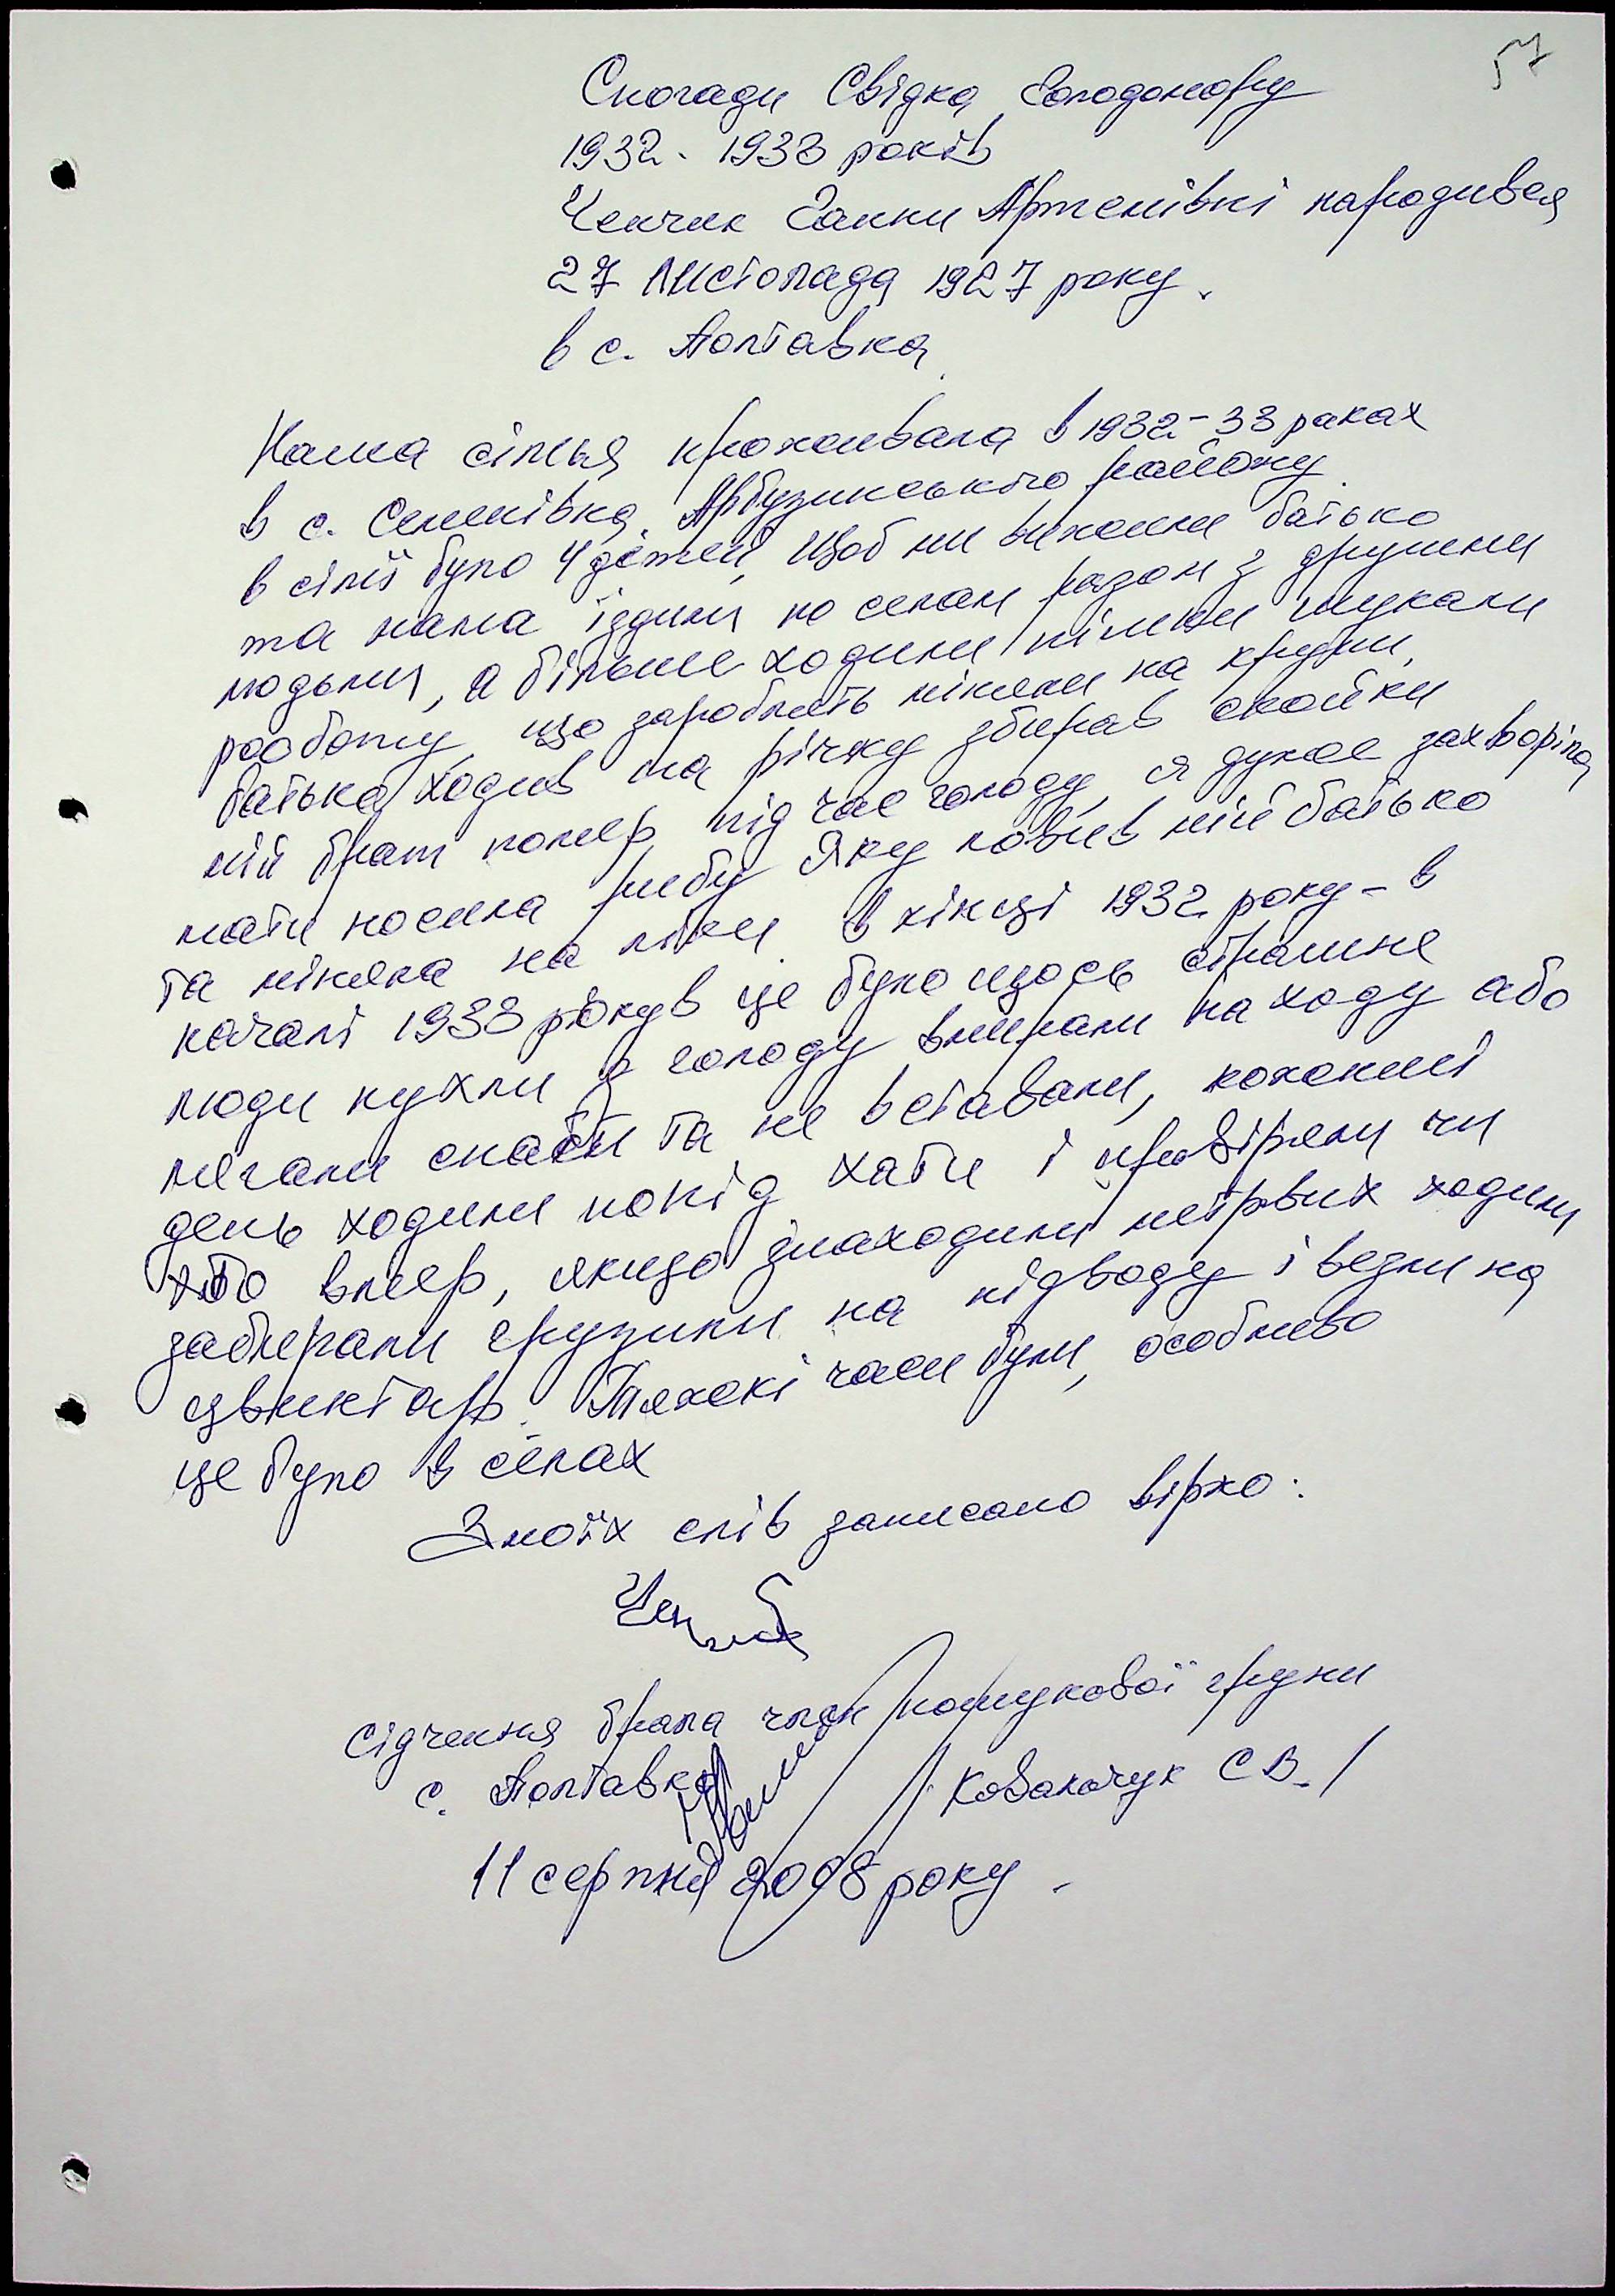 57
Спогади Свідка Голодомору
1932 - 1933 років
Ченчик Ганни Артемівні народився
27 листопада 1927 року.
в с. Полтавка
Наша сімья проживала в 1932-33 роках
в с. Семенівка, Арбузинського району
в сім'ї було 4 дітей, Щоб ми вижили батько
та мама їздили по селам разом з другими
людьми, а більше ходили пішки шукали
роботу, що зароблять міняли на крупи,
батько ходив на річку збирав скойки
мій брат помер під час голоду, я дуже захворіла
мати носила рибу яку ловив мій батько
та міняла на ліки. в кінці 1932 року - в
началі 1933 років це було щось страшне
люди пухли з голоду вмирали на ходу або
лягали спати та не вставали, кожний
день ходили попід хати і провіряли чи
хто вмер, якщо знаходили метрвих ходили
забирали грузили на підводу і везли на
цвинтарь. Тяжкі часи були, особливо
це було в селах
З моїх слів записано вірно:
сідчення брала член пошукової групи
с. Полтавка / Ковальчук С В. /
11 серпня 2008 року.